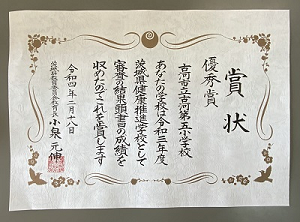 賞状
優秀賞
古河市立古河第五小学校
あなたの学校は令和三年度
茨城県健康推進学校として
審査の結果頭書の成績を
収めたのでこれを賞します
令和四年二月十八日
茨城県教育委員会教育長 小泉元伸